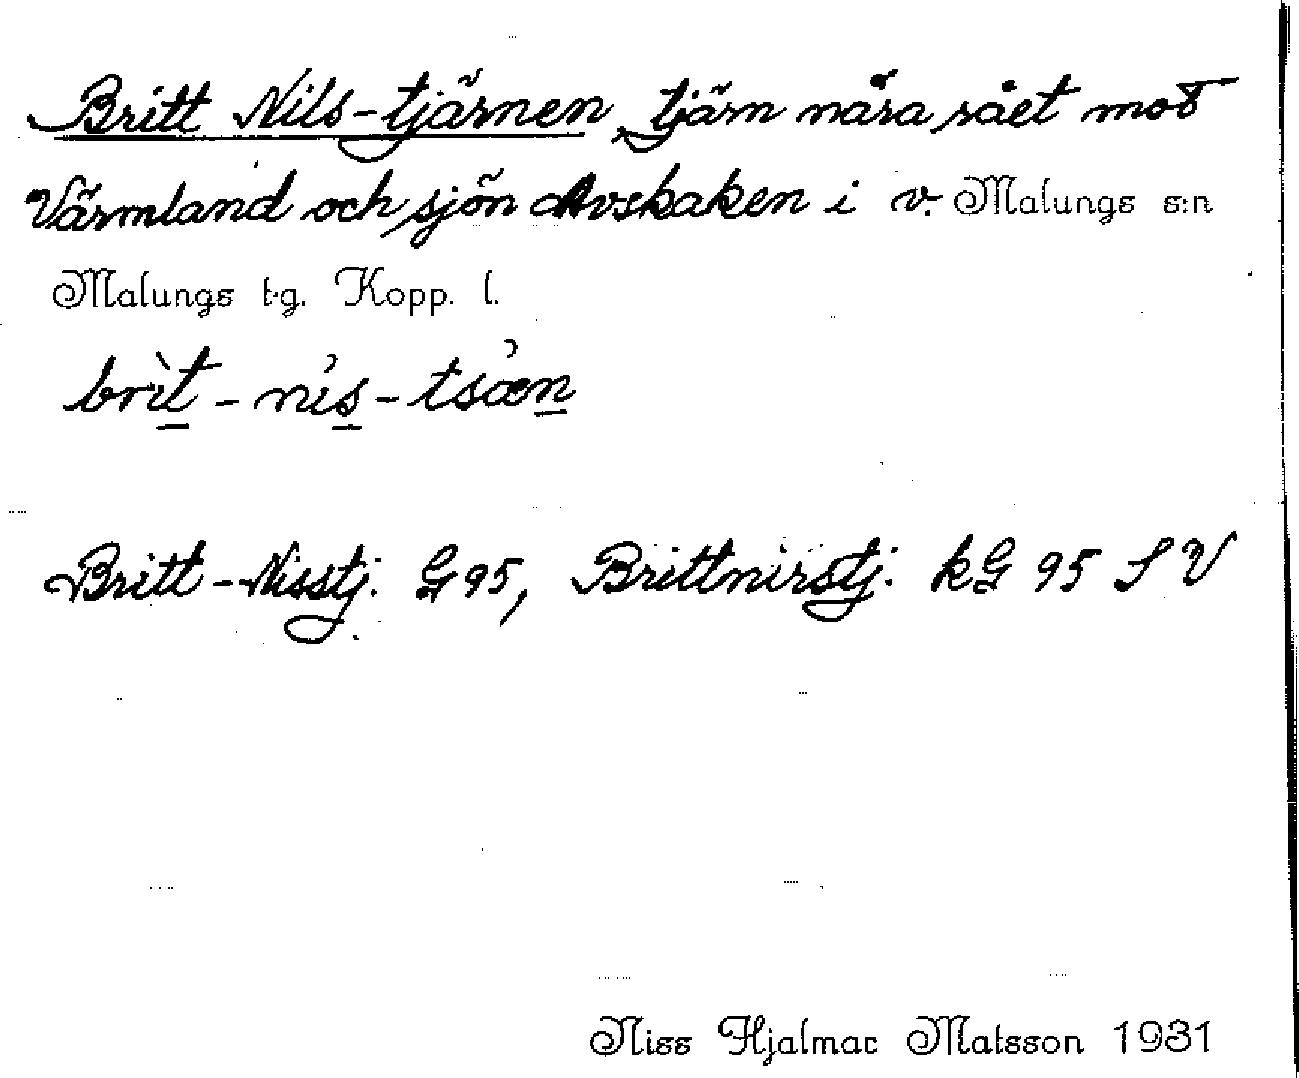 Britt Nils-tjärnen, tjärn nära rået mot
Värmland och sjön Avskaken i v. Malungs s:n
Malungs t.g. Kopp. l.
brìt - nís - tsǽn
Britt-Nisstj. G 95, Brittnirstj. kG 95 S V
Niss Hjalmar Matsson 1931